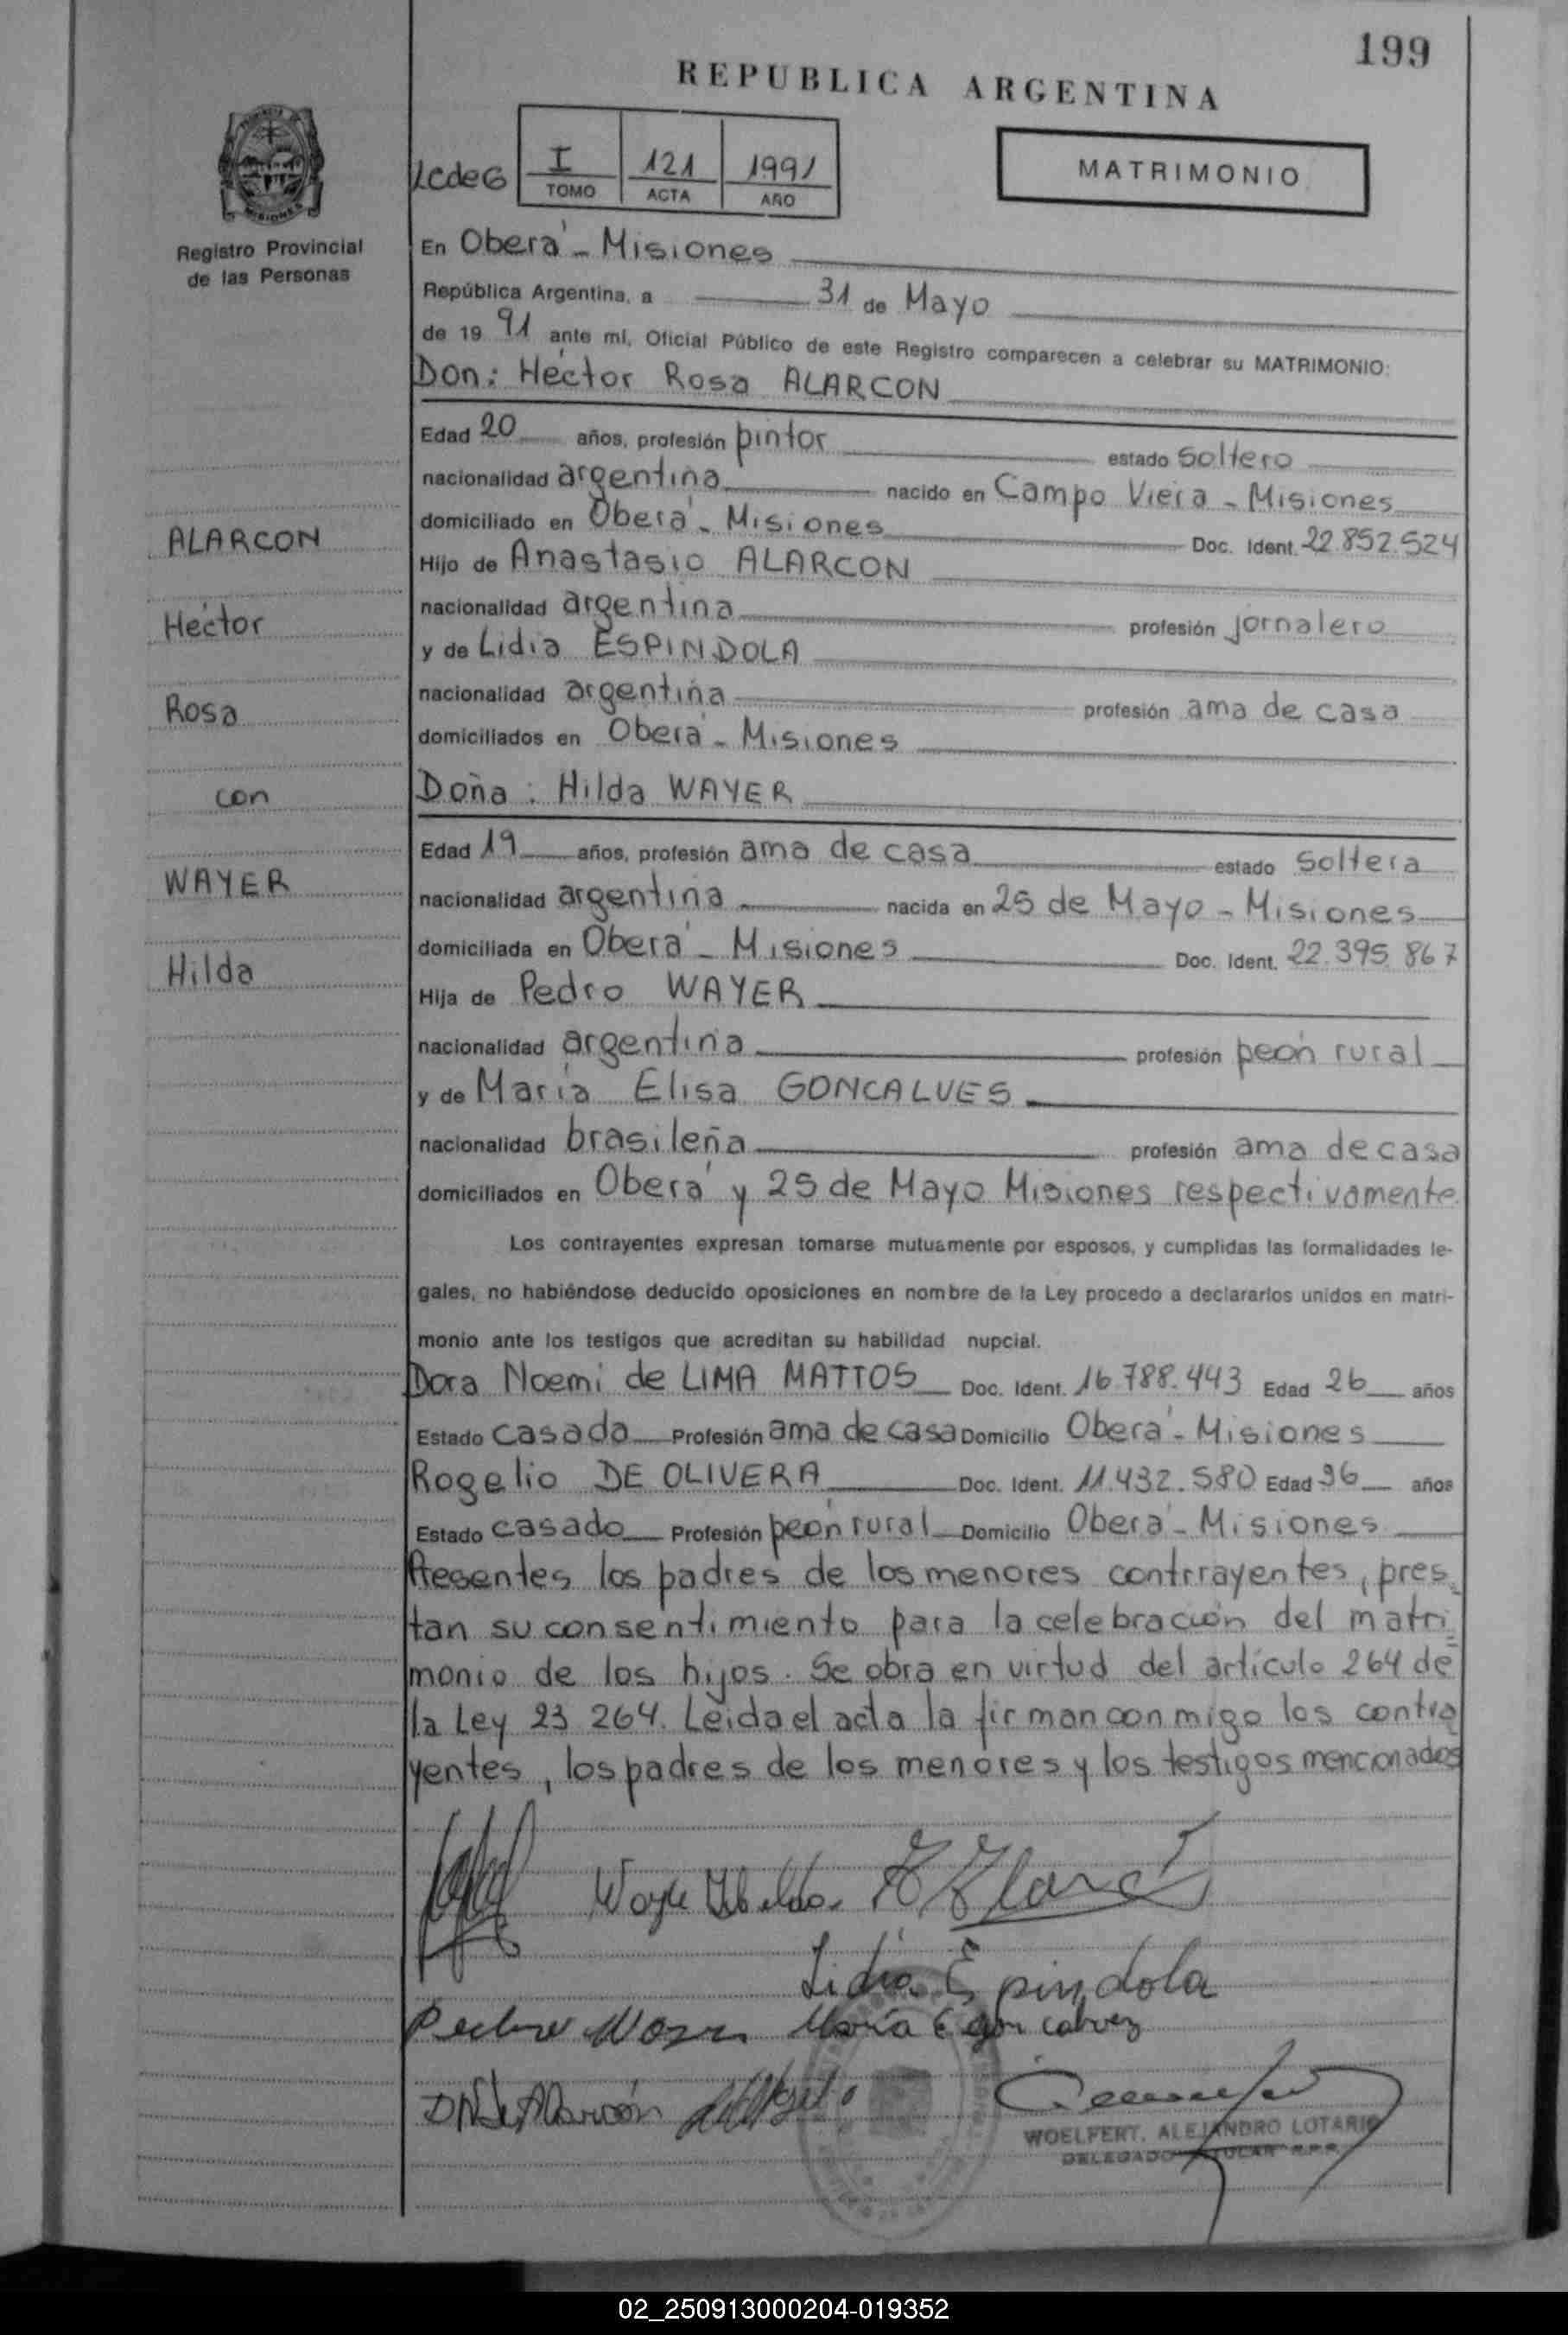 199
REPUBLICA ARGENTINA
MISIONES
Registro Provincial
de las Personas
LcdeG
I 121 1991
TOMO ACTA AÑO
MATRIMONIO
En Oberá - Misiones
República Argentina, a 31 de Mayo
de 19 91 ante mi, Oficial Público de este Registro comparecen a celebrar su MATRIMONIO:
Don: Héctor Rosa ALARCON
Edad 20 años, profesión pintor estado soltero
nacionalidad argentina nacido en Campo Viera - Misiones
domiciliado en Oberá - Misiones Doc. Ident. 22.852.524
Hijo de Anastasio ALARCON
nacionalidad argentina profesión jornalero
y de Lidia ESPINDOLA
nacionalidad argentina profesión ama de casa
domiciliados en Oberá - Misiones
Doña: Hilda WAYER
Edad 19 años, profesión ama de casa estado soltera
nacionalidad argentina nacida en 25 de Mayo - Misiones
domiciliada en Oberá - Misiones Doc. Ident. 22.395.867
Hija de Pedro WAYER
nacionalidad argentina profesión peón rural
y de María Elisa GONCALVES
nacionalidad brasileña profesión ama de casa
domiciliados en Oberá y 25 de Mayo Misiones respectivamente
ALARCON
Héctor
Rosa
con
WAYER
Hilda
Los contrayentes expresan tomarse mutuamente por esposos, y cumplidas las formalidades le-
gales, no habiéndose deducido oposiciones en nombre de la Ley procedo a declararlos unidos en matri-
monio ante los testigos que acreditan su habilidad nupcial.
Dora Noemi de LIMA MATTOS Doc. Ident. 16.788.443 Edad 26 años
Estado casada Profesión ama de casa Domicilio Oberá - Misiones
Rogelio DE OLIVERA Doc. Ident. 11.432.580 Edad 36 años
Estado casado Profesión peón rural Domicilio Oberá - Misiones
Presentes los padres de los menores contrrayentes, pres
tan su consentimiento para la celebración del matri=
monio de los hijos. Se obra en virtud del artículo 264 de
la Ley 23 264. Leida el acta la firman conmigo los contra
yentes, los padres de los menores y los testigos mencionados
Lidia Espindola
María E gon calvez
WOELFERT, ALEJANDRO LOTARIO
DELEGADO TITULAR R.P.P.
02_250913000204-019352